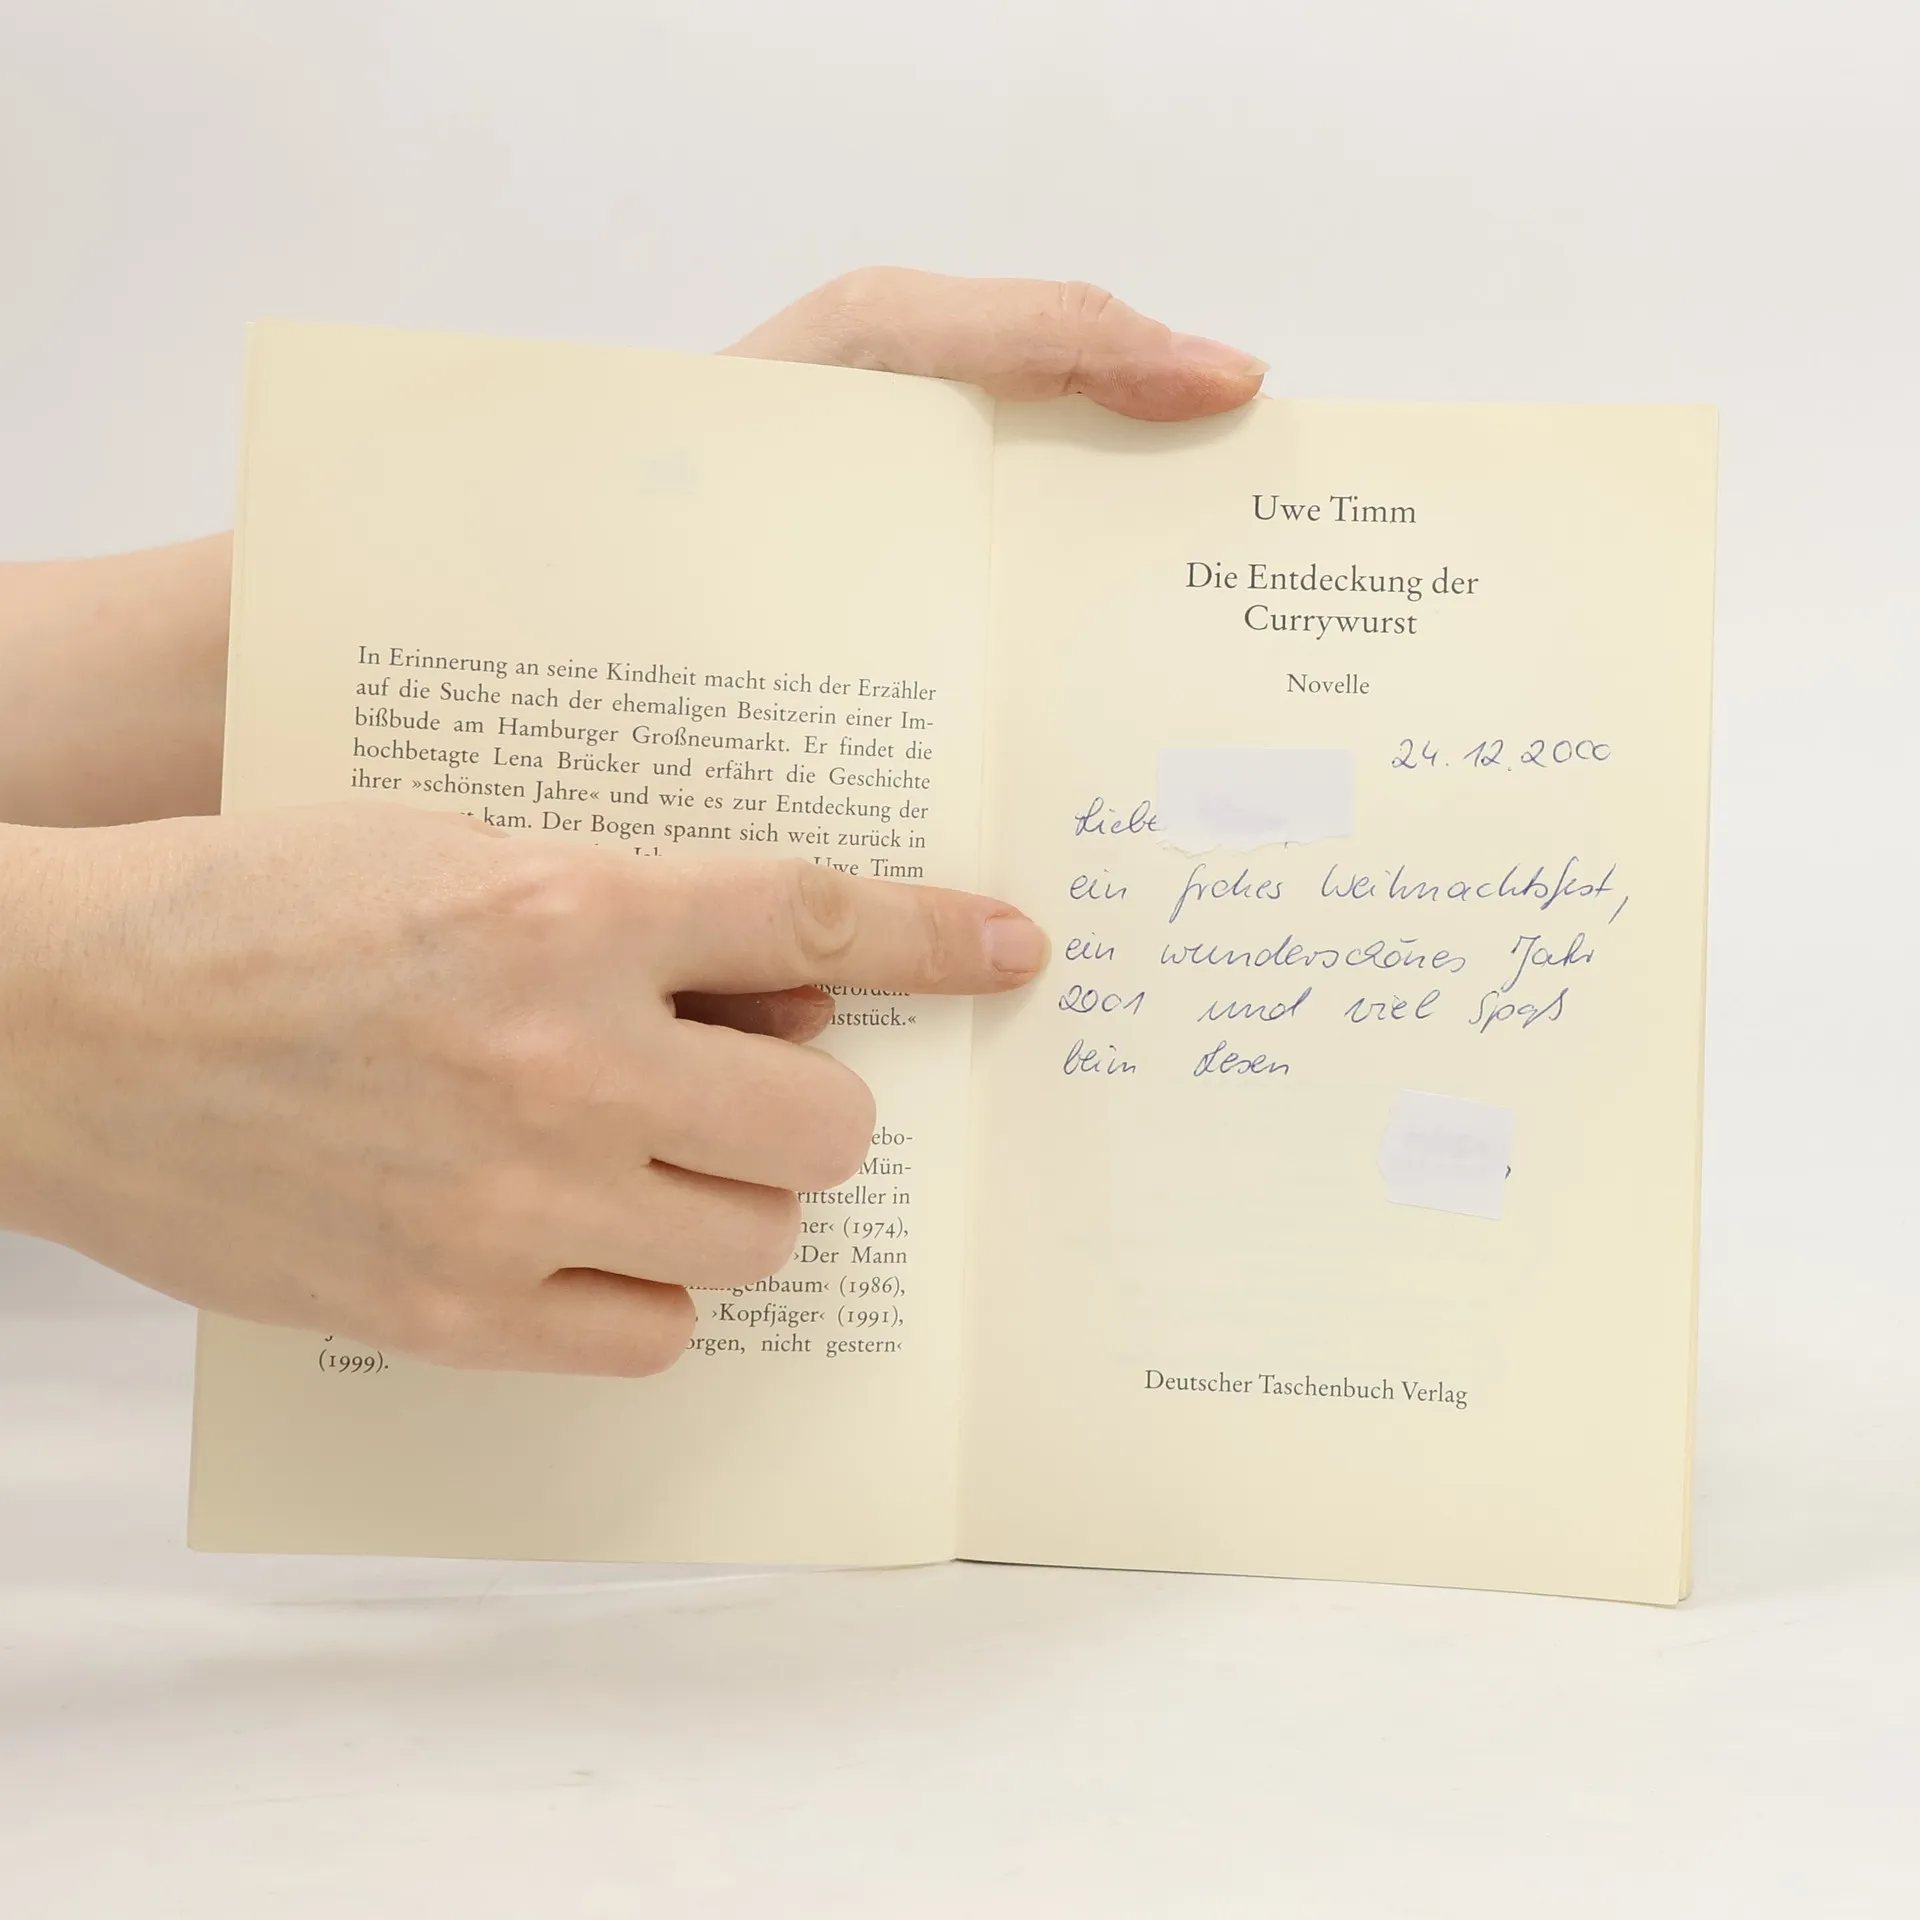 In Erinnerung an seine Kindheit macht sich der Erzähler
auf die Suche nach der ehemaligen Besitzerin einer Im-
bißbude am Hamburger Großneumarkt. Er findet die
hochbetagte Lena Brücker und erfährt die Geschichte
ihrer »schönsten Jahre« und wie es zur Entdeckung der
kam. Der Bogen spannt sich weit zurück in
Uwe Timm
iststück.«
ebo-
Mün-
riftsteller in
ner‹ (1974),
›Der Mann
genbaum‹ (1986),
›Kopfjäger‹ (1991),
orgen, nicht gestern‹
(1999).
Uwe Timm
Die Entdeckung der
Currywurst
Novelle
24.12.2000
Liebe
ein frohes Weihnachtsfest,
ein wunderschönes Jahr
2001 und viel Spaß
beim Lesen
Deutscher Taschenbuch Verlag